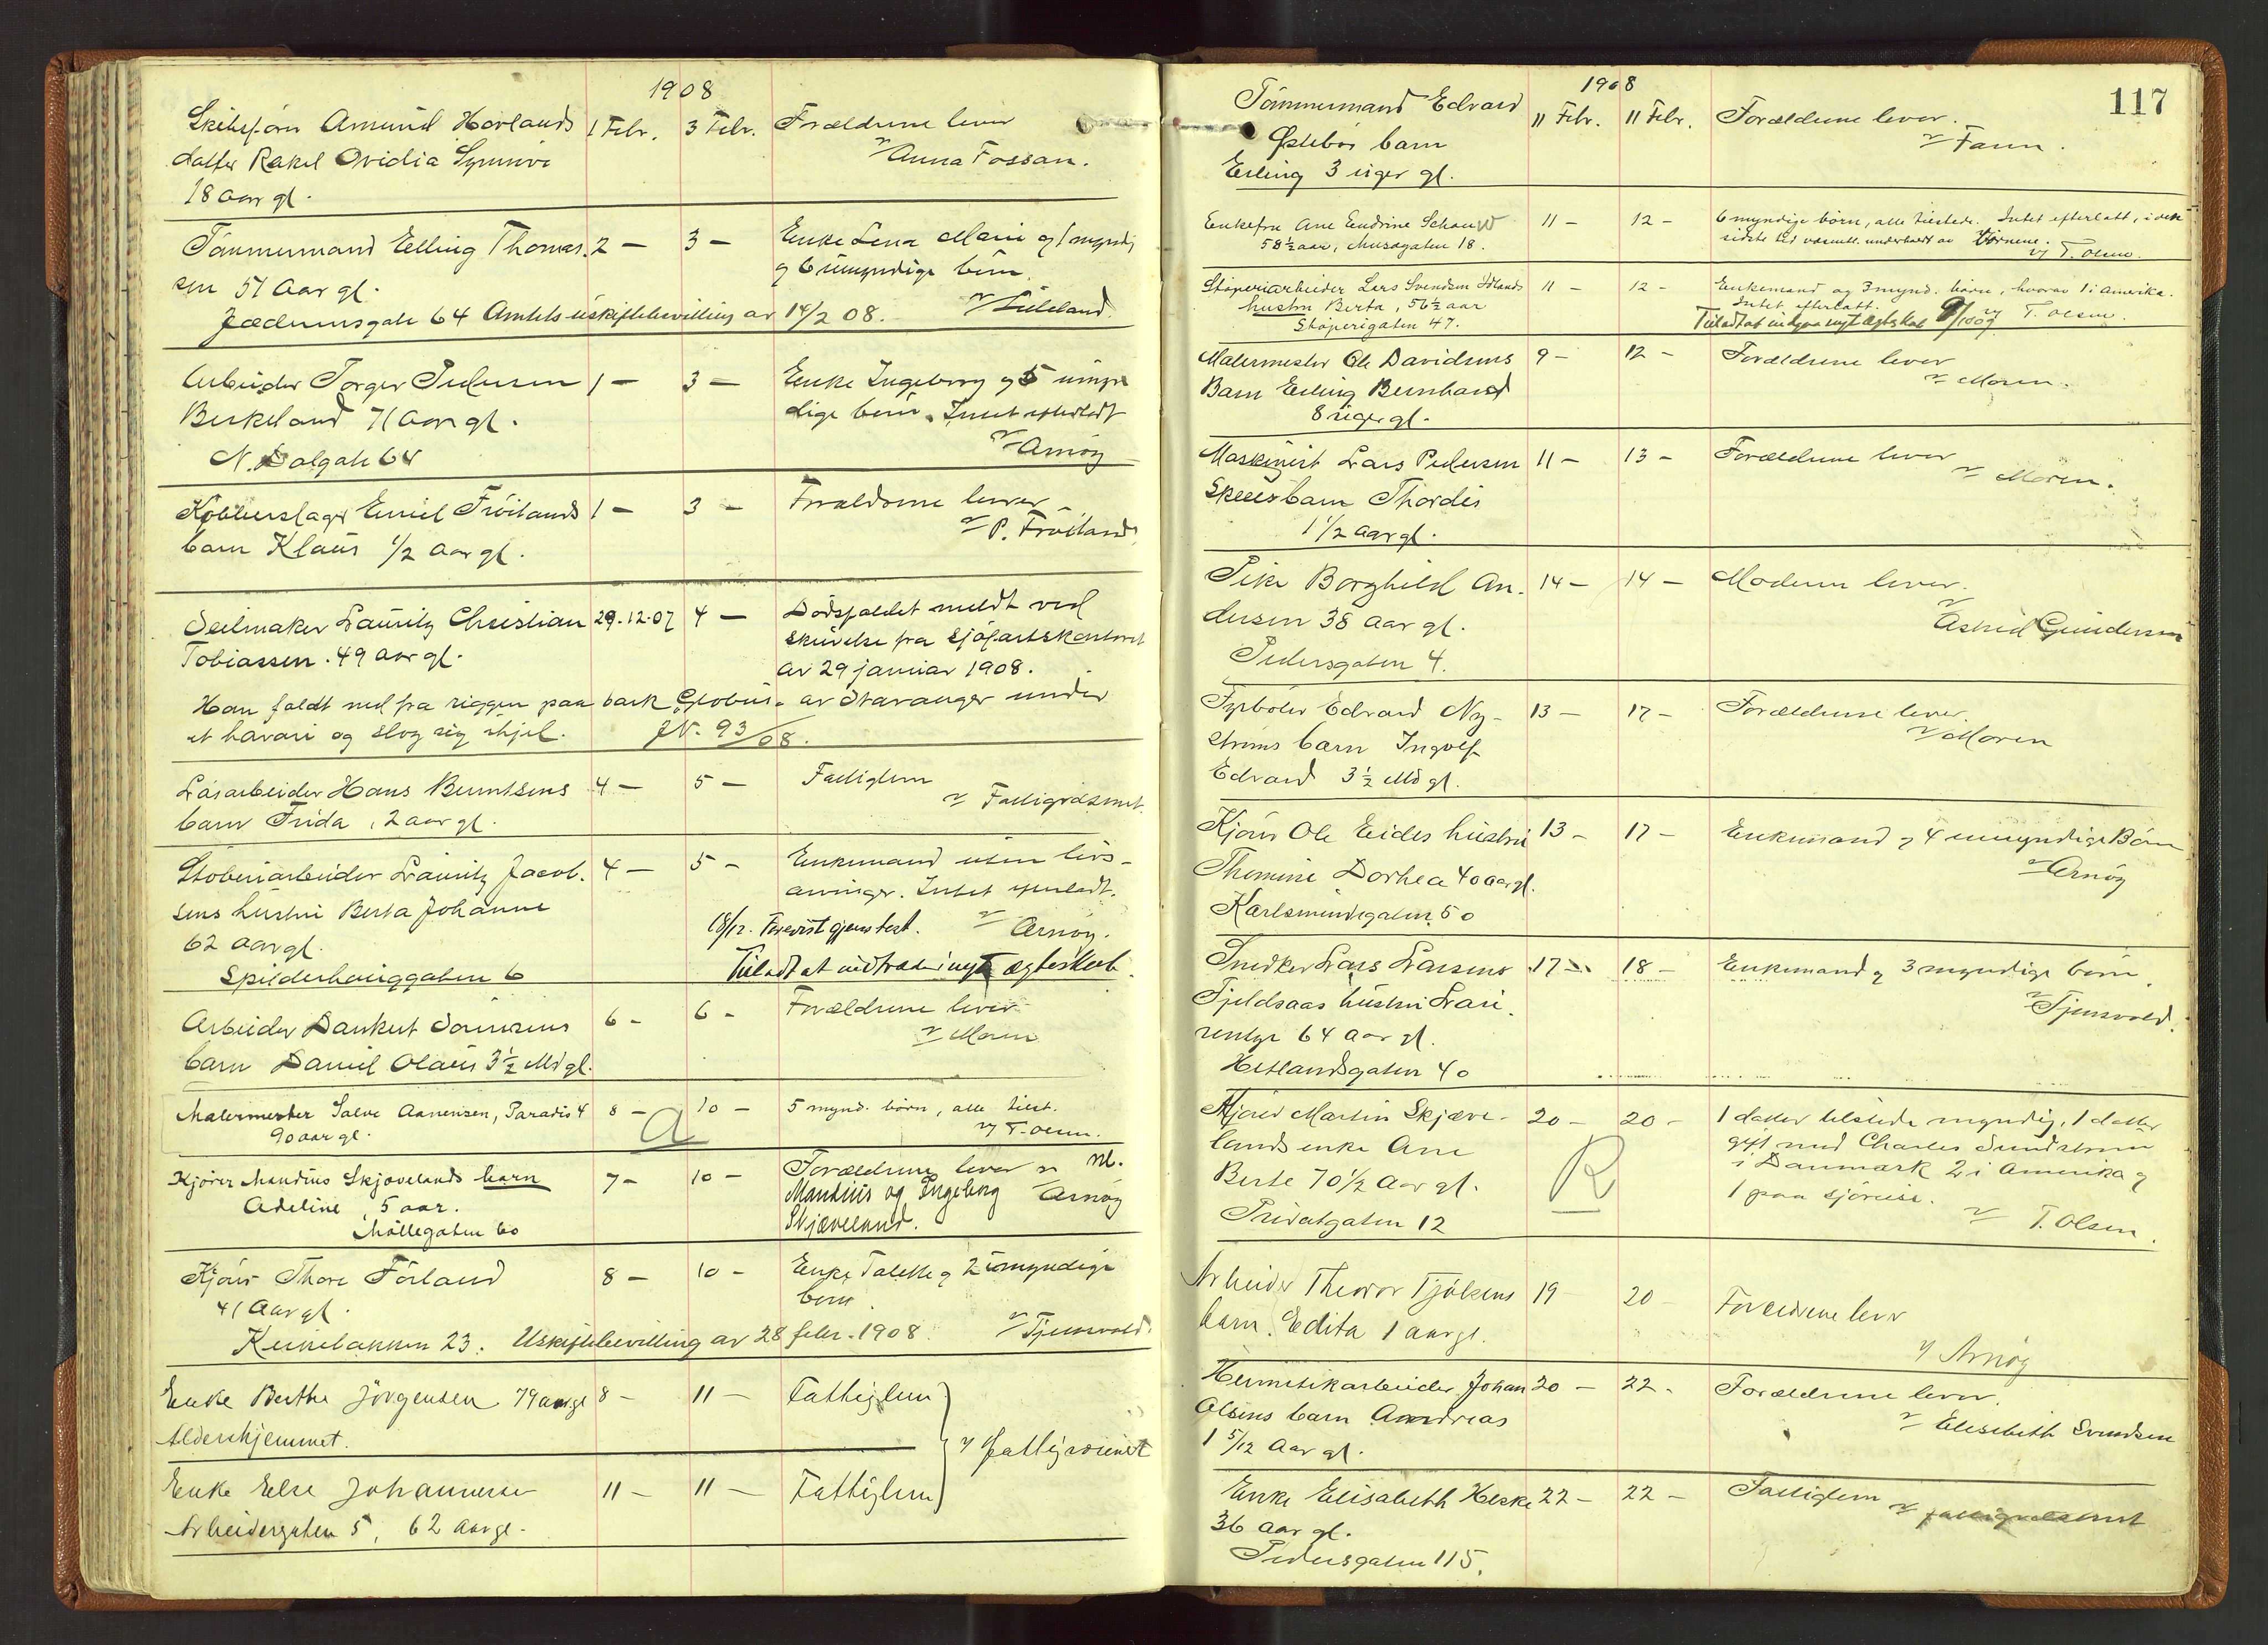 1908
Skibsfører Amund Hovlands 1 Febr. 3 Febr. Forældrene lever
datter Rakel Ovidia Synnøve v/ Anna Fossan.
18 aar gl.
Tømmermand Elling Thomas. 2 — 3 — Enke Lena Marie og 1 myndig
sen 51 Aar gl. og 6 umyndige børn.
Jædernsgate 64 Amtets uskiftebevilling av 14/2 08. v/
Arbeider Torger Pedersen 1 — 3 — Enke Ingeborg og 5 umyn
Birkeland 71 Aar gl. dige børn. Intet efterladt
N. Dalgate 64 v/ Arnøy
Kobberslager Emil Frøilands 1 — 3 — Forældrene lever
barn Klaus 1/2 Aar gl. v/ P. Frøiland
Seilmaker Lauritz Christian 29.12.07 4 — Dødsfaldet meldt ved
Tobiassen. 49 aar gl. skrivelse fra Sjøfartskontoret
av 29 januar 1908.
Han faldt ned fra riggen paa bark "Globus" av Stavanger under
et havari og slog sig ihjel. JN. 93/08.
Løsarbeider Hans Berntsens 4 — 5 — Fattiglem
barn Frida, 2 aar gl. v/ Fattigvæsenet
Støberiarbeider Lauritz Jacob. 4 — 5 — Enkemand uten livs-
sens hustru Berta Johanne arvinger. Intet efterladt.
62 aar gl. 18/12. Forevist gjens. test. v/ Arnøy.
Spilderhauggaten 6 Tilladt at indtræde i nyt ægteskab.
Arbeider Dankert Sørensens 6 — 6 — Forældrene lever
barn Daniel Olaus 3½ Md gl. v/ Moren
Malermester Salve Aanensen, Paradis 4 8 — 10 — 5 mynd. børn, alle tilst.
90 aar gl. a v/ T. Olsen.
Kjører Mandius Skjævelands barn 7 — 10 — Forældrene lever v/ Nl.
Adeline, 5 aar. Mandius og Ingeborg Arnøy
Møllegaten 60 Skjæveland.
Kjører Thore Førland 8 — 10 — Enke Talette og 2 umyndige
41 Aar gl. børn.
Kirkebakken 23. Uskiftebevilling av 28 febr. 1908. v/ Tjensvold.
Enke Berthe Jörgensen 79 aar gl 8 — 11 — Fattiglem
Aldershjemmet. v/ Fattigvæsenet
Enke Else Johannesen 11 — 11 — Fattiglem
Arbeidergaten 5, 62 Aar gl.
117
1908
Tømmermand Edvard 11 Febr. 11 Febr. Forældrene lever.
Østebøs barn v/ Faren.
Erling 3 uger gl.
Enkefru Ane Endrine Schouw 11 — 12 — 6 myndige børn, alle tilstede. Intet efterlatt, i den
58½ aar, Musægaten 18. sidste tid væsentl. underholdt av børnene.
v/ T. Olsen.
Støperiarbeider Lars Svendsen Idlands 11 — 12 — Enkemand og 3 mynd. børn, hvorav 1 i Amerika.
hustru Berta, 56½ aar Intet efterlatt. v/ T. Olsen.
Støperigaten 47. Tilladt at indgaa nyt ægteskab
Malermester Ole Davidsens 9 — 12 — Forældrene lever
Barn Erling Bernhard v/ Moren.
8 uger gl.
Maskinist Lars Pedersen 11 — 13 — Forældrene lever
Skeies barn Thordis v/ Moren.
1 1/2 aar gl.
Pike Borghild An. 14 — 14 — Moderen lever.
dersen 38 aar gl. v/ Astrid Gundersen
Pedersgaten 4.
Fyrbøter Edvard Ny- 13 — 17 — Forældrene lever.
strøms barn Ingolf v/ Moren
Edvard 3½ Md gl.
Kjører Ole Eides hustru 13 — 17 — Enkemand og 4 umyndige Børn
Thomine Dorhea 40 aar gl. v/ Arnøy
Karlsmindegaten 50
Snedker Lars Larsens 17 — 18 — Enkemand og 3 myndige børn.
Fjeldsaas hustru Lari. v/ Tjensvold.
64 aar gl.
Hetlandsgaten 40
Kjører Martin Skjæve- 20 — 20 — 1 datter tilstede myndig, 1 datter
lands enke Ane gift med Charles Sundstrøm
Berte 70 1/2 Aar gl. R i Danmark 2 i Amerika og
Privatgaten 12 1 paa sjøreise.
v/ T. Olsen.
Arbeider Theodor Tjølsens 19 — 20 — Forældrene lever
barn. Edita 1 aar gl. v/ Arnøy
Hermetikarbeider Johan 20 — 22 — Forældrene lever.
Olsens barn Andreas v/ Elisabeth Svendsen
1 5/12 Aar gl.
Enke Elisabeth Heske 22 — 22 — Fattiglem
36 aar gl. v/ fattigvæsenet
Pedersgaten 115.